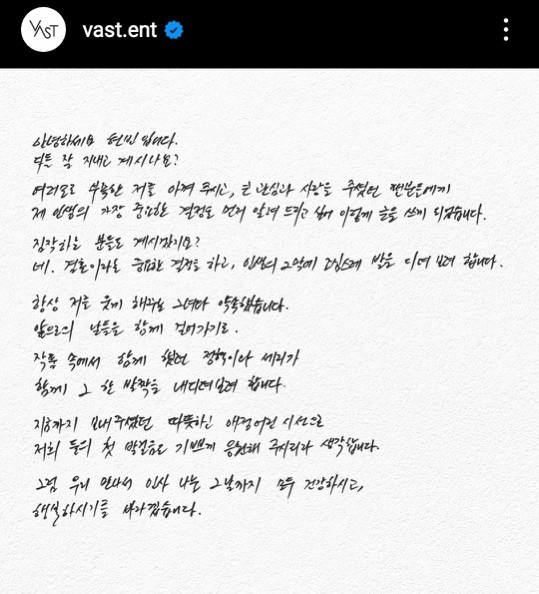 VAST
vast.ent
안녕하세요 현빈 입니다.
다들 잘 지내고 계시나요?
여러모로 부족한 저를 아껴 주시고, 큰 관심과 사랑을 주셨던 팬분들에게
제 인생의 가장 중요한 결정을 먼저 알려 드리고 싶어 이렇게 글을 쓰게 되었습니다.
짐작하실 분들도 계시겠지요?
네. 결혼이라는 중요한 결정을 하고, 인생의 2막에 조심스레 발을 디뎌 보려 합니다.
항상 저를 웃게 해주는 그녀와 약속했습니다.
앞으로의 날들을 함께 걸어가기로.
작품 속에서 함께 했던 정혁이와 세리가
함께 그 한 발짝을 내디뎌보려 합니다.
지금까지 보내주셨던 따뜻하고 애정어린 시선으로
저희 둘의 첫 발걸음도 기쁘게 응원해 주시리라 생각합니다.
그럼 우리 만나서 인사 나눌 그날까지 모두 건강하시고,
행복하시기를 바라겠습니다.